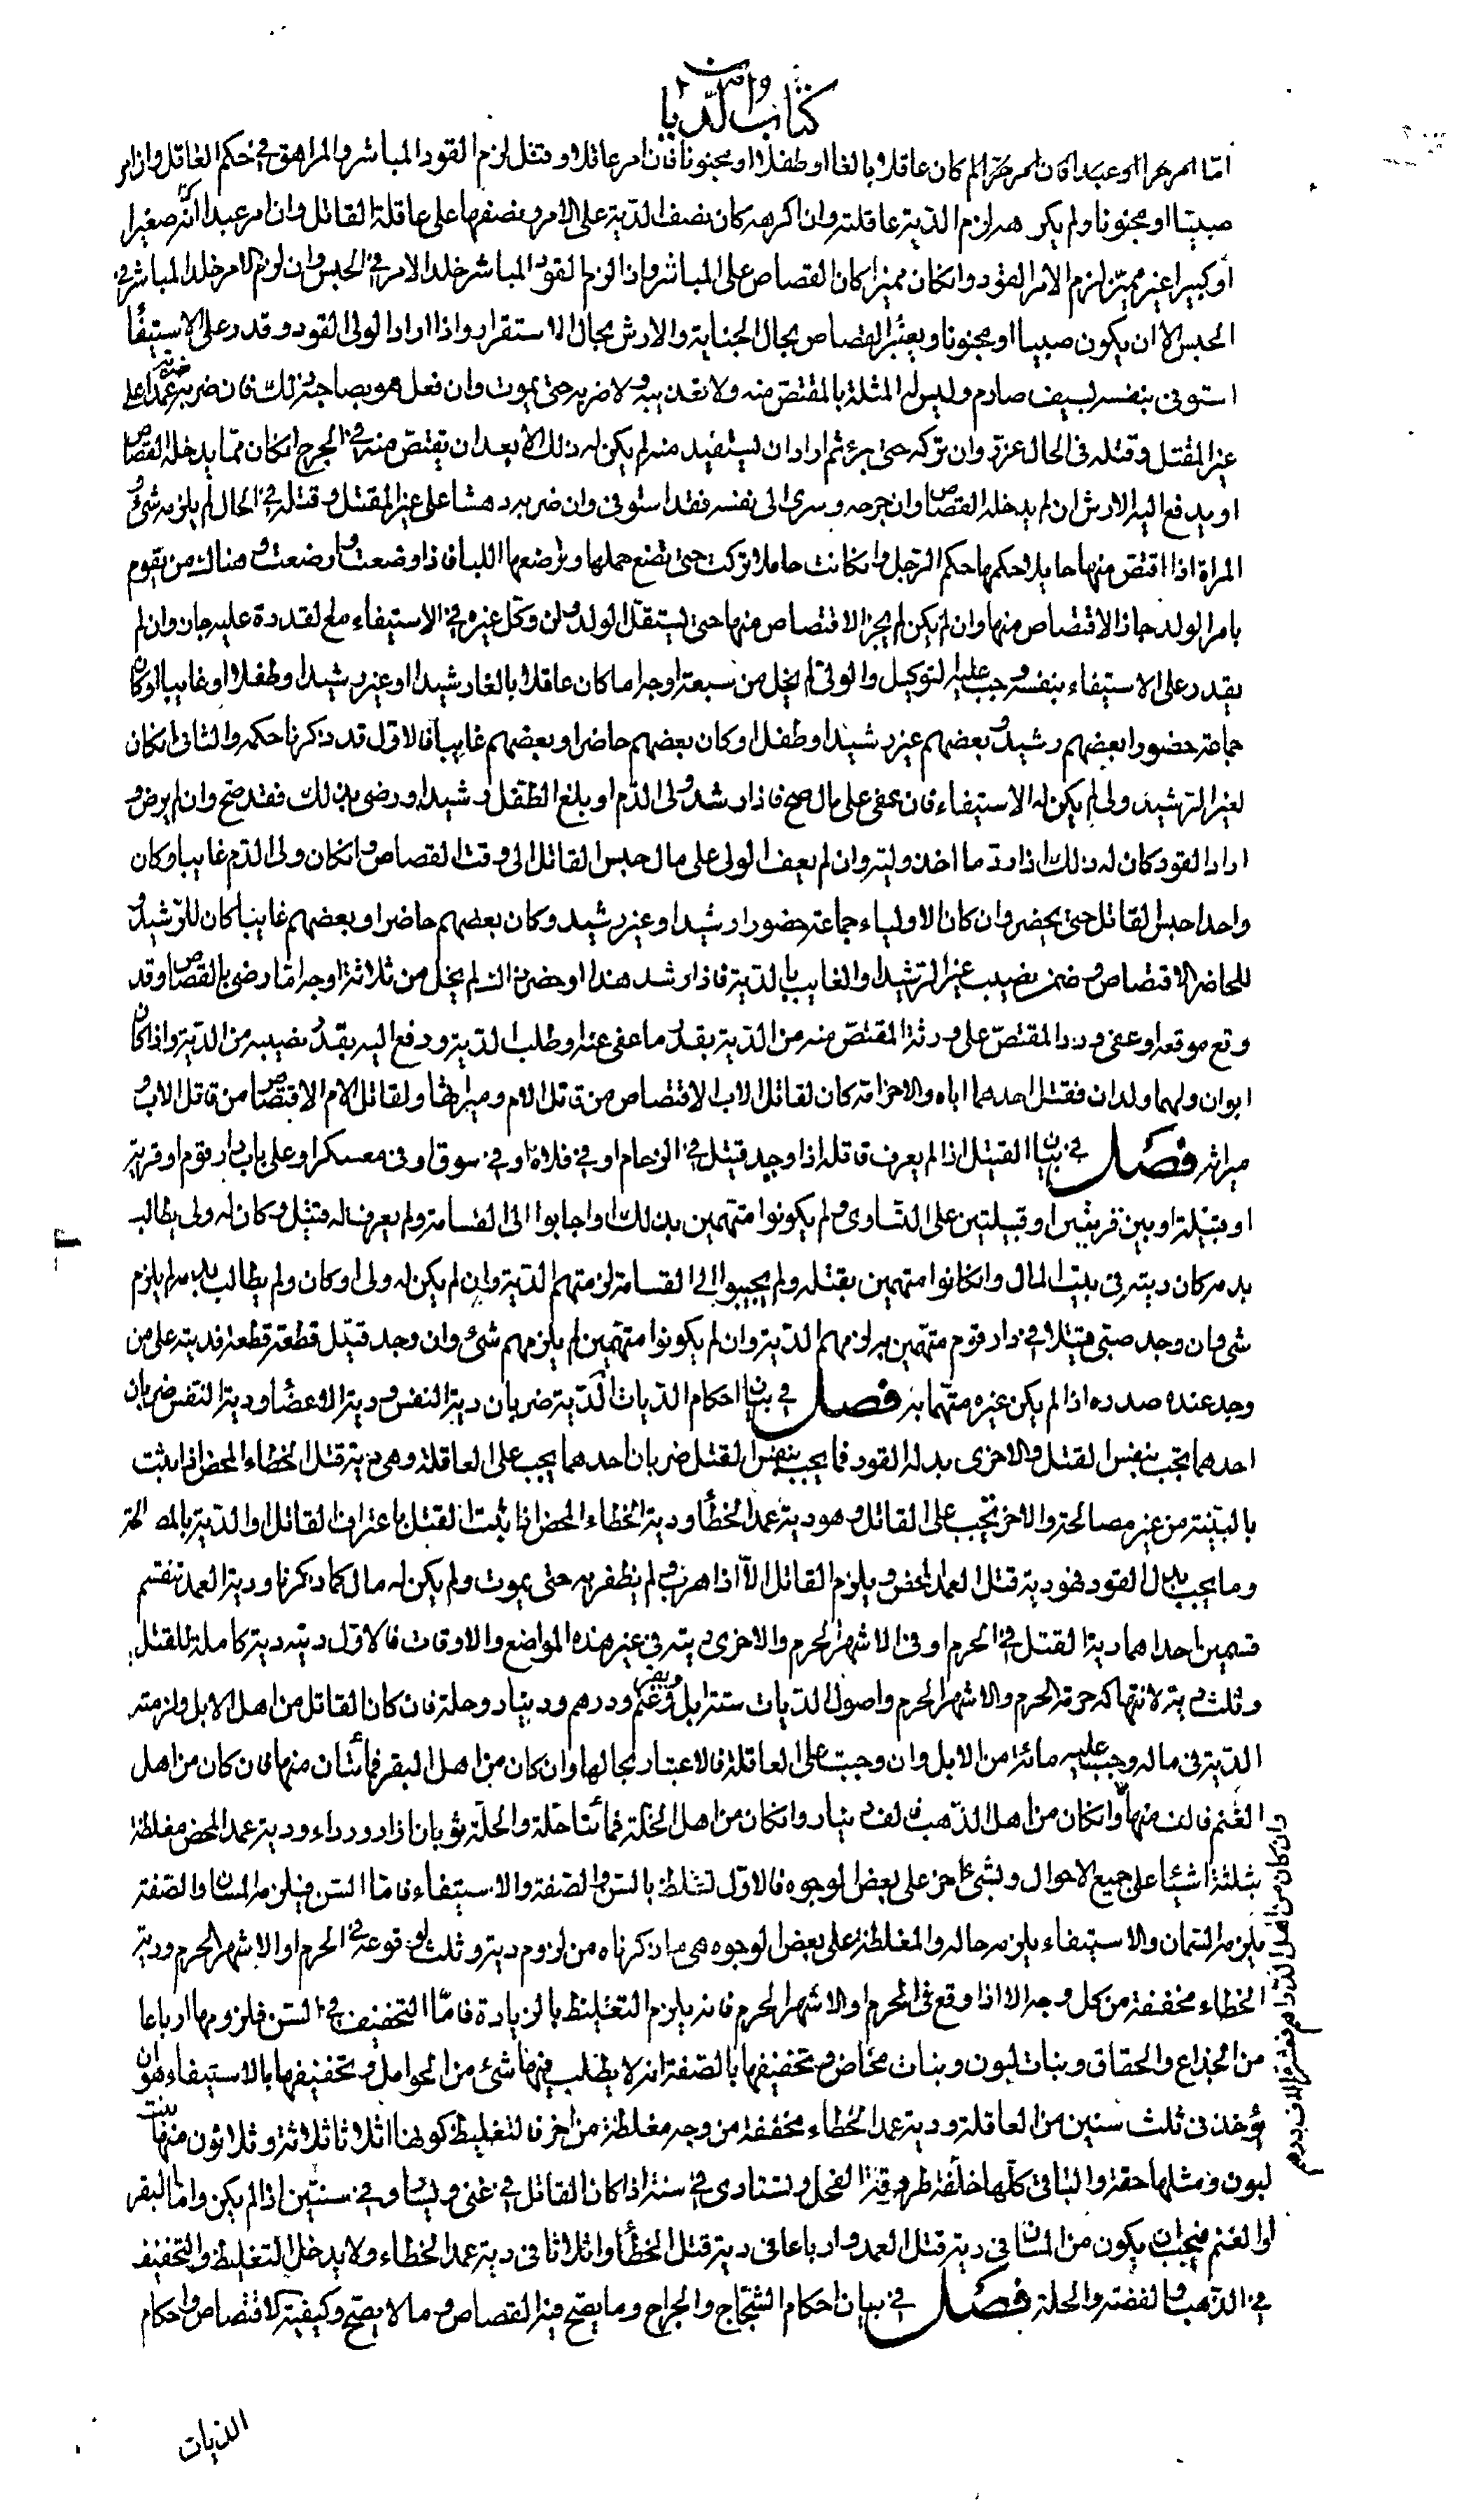 كتاب الديات
اما امر حرا او عبدا فان امر حرا لم كان عاقلا بالغا او طفلا او مجنونا فان امر عاقلا وقتل لزم القود المباشر والمراهق في حكم العاقل وان امر
صبيا او مجنونا ولم يكرهه لزم الدية عاقلته وان اكرهه كان نصف الدية على الامر ونصفها على عاقلة القاتل وان امر عبدا له صغيرا
او كبيرا غير مميز لزم الامر القود وان كان مميزا كان القصاص على المباشر واذا لزم القود المباشر خلد الامر في الحبس وان لزم الامر خلد المباشر في
الحبس الا ان يكون صبيا او مجنونا ويعتبر القصاص بحال الجناية والارش بحال الاستقرار واذا اراد الولى القود وقدر على الاستيفا
استوفى بنفسه بسيف صارم وليس له المثلة بالمقتص منه ولا تعذيبه ولا ضربه حتى يموت وان فعل هو بصاحبه ذلك فان ضربه عمدا على
غير المقتل وقتله في الحال عزر وان تركه حتى برئ ثم اراد ان يستقيد منه لم يكن له ذلك الا بعد ان يقتص منه في الجرح ان كان مما يدخله القصاص
او يدفع اليه الارش ان لم يدخله القصاص وان جرحه وسرى الى نفسه فقد استوفى وان ضربه دهشا على غير المقتل وقتله في الحال لم يلزمه شئ و
المراة اذا اقتص منها حايلا حكمها حكم الرجل وان كانت حاملا تركت حتى تضع حملها وترضعها اللبا فاذا وضعت وارضعت وهناك من يقوم
بامر الولد جاز الاقتصاص منها وان لم يكن لم يجز الاقتصاص منها حتى يستقل الولد ومن وكل غيره في الاستيفاء مع القدرة عليه جاز وان لم
يقدر على الاستيفاء بنفسه وجب عليه التوكيل والولى لم يخل من سبعة اوجه اما كان عاقلا بالغا رشيدا او غير رشيد او طفلا او غايبا او كان
جماعة حضورا بعضهم رشيد وبعضهم غير رشيد او طفل او كان بعضهم حاضرا وبعضهم غايبا فالاول قد ذكرنا حكمه والثانى ان كان
لغير الرشيد ولى لم يكن له الاستيفاء فان عفى على مال صح فاذا رشد ولى الدم او بلغ الطفل رشيدا ورضى بذلك فقد صح وان لم يرض و
اراد القود كان له ذلك اذا رد ما اخذ وليه وان لم يعف الولى على مال حبس القاتل الى وقت القصاص وان كان ولى الدم غايبا وكان
واحدا حبس القاتل حتى يحضر وان كان الاولياء جماعة حضورا رشيدا وغير رشيد وكان بعضهم حاضرا وبعضهم غايبا كان للرشيد و
للحاضر الاقتصاص وضمن نصيب غير الرشيد والغايب بالدية فاذا رشد هذا او حضر ذاك لم يخل من ثلاثة اوجه اما رضى بالقصاص وقد
وقع موقعه او عفى ورد المقتص على ورثة المقتص منه من الدية بقدر ما عفى عنه او طلب الدية ودفع اليه بقدر نصيبه من الدية واذا كان
ابوان ولهما ولدان فقتل احدهما اباه والاخر امه كان لقاتل الاب الاقتصاص من قاتل الام وميراثها ولقاتل الام الاقتصاص من قاتل الاب و
ميراثه فصل في بيان القتيل اذا لم يعرف قاتله اذا وجد قتيل في الزحام او في فلاة او في سوق او في معسكر او على باب دار قوم او قرية
او قبيلة او بين قريتين او قبيلتين على التساوى ولم يكونوا متهمين بذلك او اجابوا الى القسامة ولم يعرف له قتيل وكان له ولى يطالب
بدمه كان ديته في بيت المال وان كانوا متهمين بقتله ولم يجيبوا الى القسامة لزمتهم الدية وان لم يكن له ولى او كان ولم يطالب بدمه لم يلزم
شئ وان وجد صبى قتيلا في دار قوم متهمين به لزمهم الدية وان لم يكونوا متهمين لم يلزمهم شئ وان وجد قتيل قطعة قطعة فديته على من
وجد عنده صدره اذا لم يكن غيره متهما به فصل في بيان احكام الديات الدية ضربان دية النفس ودية الاعضا ودية النفس ضربان
احدهما تجب بنفس القتل والاخرى بدل القود فما يجب بنفس القتل ضربان احدهما يجب على العاقلة وهى دية قتل الخطاء المحض اذا ثبت
بالبينة من غير مصالحة والاخر تجب على القاتل وهو دية عمد الخطأ ودية الخطاء المحض اذا ثبت القتل باعتراف القاتل او الدية بالمصالحة
وما يجب بدل القود فهو دية قتل العمد المحض ويلزم القاتل الا اذا هرب ولم يظفر به حتى يموت ولم يكن له مال كما ذكرنا ودية العمد تنقسم
قسمين احداهما دية القتل في الحرم او في الاشهر الحرم والاخرى ديته في غير هذه المواضع والاوقات فالاول ديته دية كاملة للقتل
وثلث دية لانتهاكه حرمة الحرم والاشهر الحرم واصول الديات ستة ابل وبقر وغنم ودرهم ودينار وحلة فان كان القاتل من اهل الابل ولزمته
الدية في ماله وجبت عليه مائة من الابل وان وجبت على العاقلة فالاعتبار بحالها وان كان من اهل البقر فمائتان منها وان كان من اهل
الغنم فالف منها وان كان من اهل الذهب فالف دينار وان كان من اهل الحلة فمائتا حلة والحلة ثوبان ازار ورداء ودية عمد المحض مغلظة
وان كان من اهل الدراهم فعشرة الاف درهم
بثلثة اشيا على جميع الاحوال وبشئ اخر على بعض الوجوه فالاول تغلظ بالسن والصفة والاستيفاء فاما السن فيلزمه المسان والصفة
يلزمه السمان والاستيفاء يلزمه حاله والمغلظة على بعض الوجوه هى ما ذكرناه من لزوم دية وثلث لوقوعه في الحرم او الاشهر الحرم ودية
الخطاء مخففة من كل وجه الا اذا وقع في الحرم او الاشهر الحرم فانه يلزم التغليظ بالزيادة فاما التخفيف في السن فلزومها ارباعا
من الجذاع والحقاق وبنات لبون وبنات مخاض وتخفيفها بالصفة انه لا يطلب فيها شئ من الحوامل وتخفيفها بالاستيفاء هو ان
يؤخذ في ثلث سنين من العاقلة ودية عمد الخطاء مخففة من وجه مغلظة من اخر فالتغليظ كونها اثلاثا ثلاثة وثلاثون منها بنت
لبون ومثلها حقة والباقى كلها خلفة طروقة الفحل وتستادى في سنة اذا كان القاتل في غنى ويسار وفي سنتين اذا لم يكن واما البقر
او الغنم فيجب ان يكون من المسان في دية قتل العمد وارباعا في دية قتل الخطأ واثلاثا في دية عمد الخطاء ولا يدخل التغليظ والتخفيف
في الذهب والفضة والحلة فصل في بيان احكام الشجاج والجراح وما يصح فيه القصاص وما لا يصح وكيفية الاقتصاص واحكام
الديات